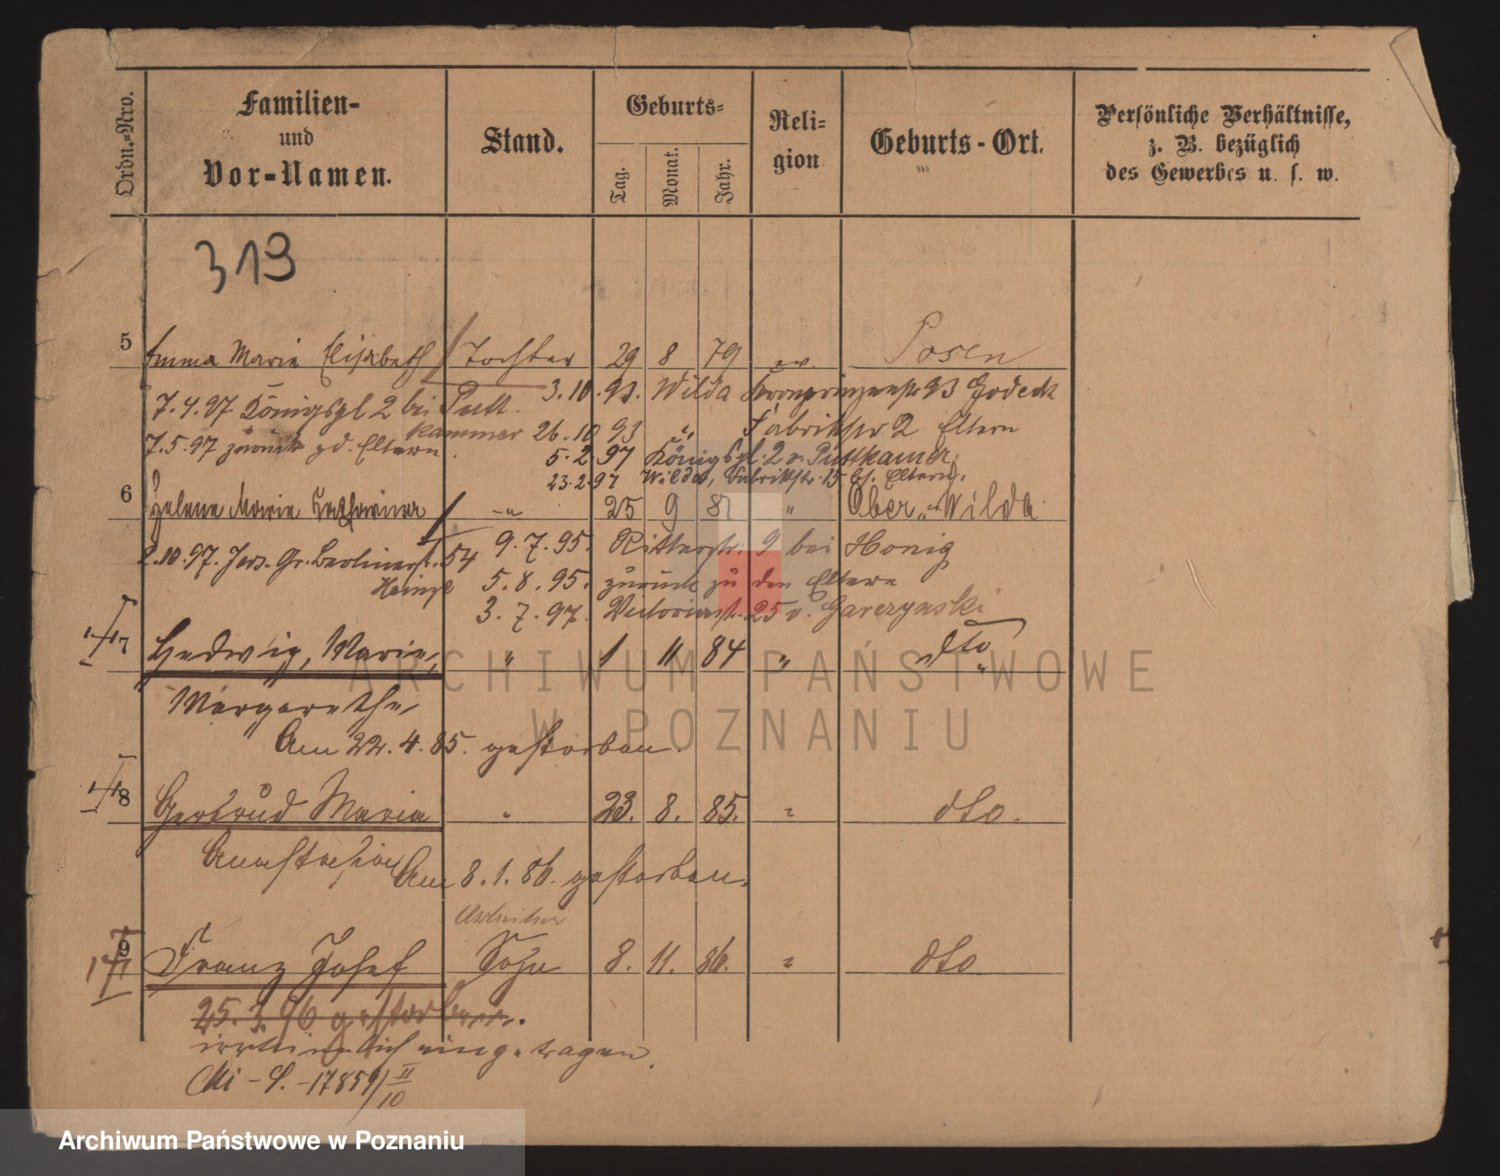 Ordn.=Nro.
Familien-
und
Vor=Namen.
Stand.
Geburts=
Tag.
Monat.
Jahr.
Reli=
gion
Geburts-Ort.
Persönliche Verhältnisse,
z. B. bezüglich
des Gewerbes u. s. w.
319
5 Emma Marie Elisabeth Tochter 29 8 79 ev. Posen
3.10.93. Wilda Kronprinzenstr 93 Godeck
7.4.97. Königspl 2 bei Putt
kammer 26.10 93 " Fabrikstr 2 Eltern
7.5.97 zurück zd. Eltern
5.2.97 Königspl. 2 v. Puttkamer.
23.2.97 Wilda, Fabrikstr. 15 bf. Eltern.
6 Helene Marie Catharina -"- 25 9 82 " Ober-Wilda
9.7.95. Ritterstr. 9 bei Honig
2.10.97. Jers. Gr. Berlinerst. 54
Heinze 5.8.95. zurück zu den Eltern
3.7.97. Victoriastr. 25 v. Garczynski
7 Hedwig, Marie, " 1 11 84 " dto
Margarethe,
Am 22.4.85. gestorben.
8 Gertrud Maria " 23. 8. 85. " dto.
Anastasia Am 8.1.86. gestorben.
Arbeiter
9 Franz Josef Sohn 8. 11. 86. " dto
25.3.96 gestorben.
irrthümlich eingetragen.
Mi-S.-17859/II/10
ARCHIWUM PAŃSTWOWE
W POZNANIU
Archiwum Państwowe w Poznaniu